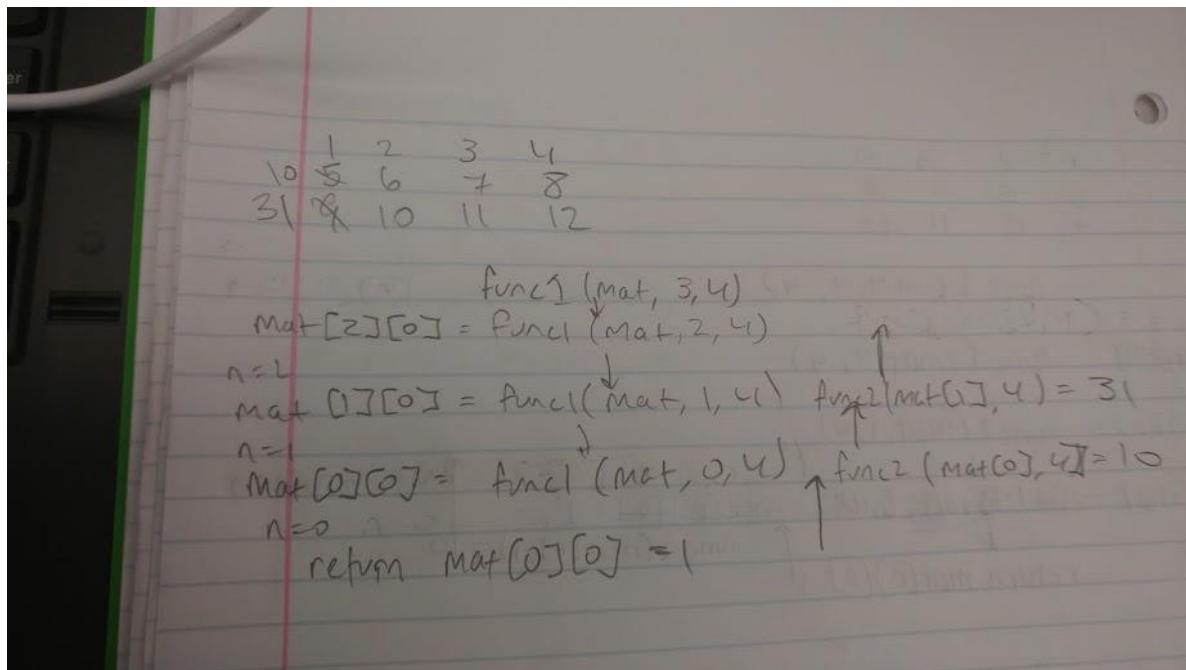 1 2 3 4
10 5 6 7 8
31 9 10 11 12
func1 (mat, 3, 4)
mat[2][0] = func1 (mat, 2, 4)
n=2
mat [1][0] = func1(mat, 1, 4) func2(mat[1], 4) = 31
n=1
mat[0][0] = func1 (mat, 0, 4) func2 (mat[0], 4)=10
n=0
return mat[0][0] = 1